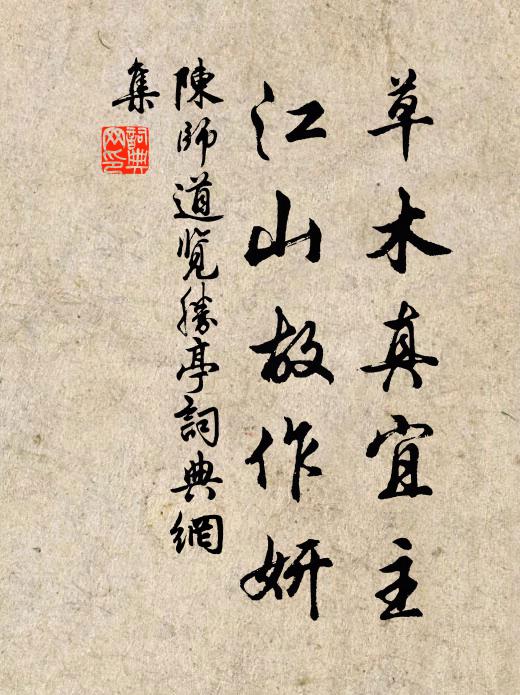 草木真宜主
江山故作妍
陳師道覽勝亭詞典網
集
詞典
网印